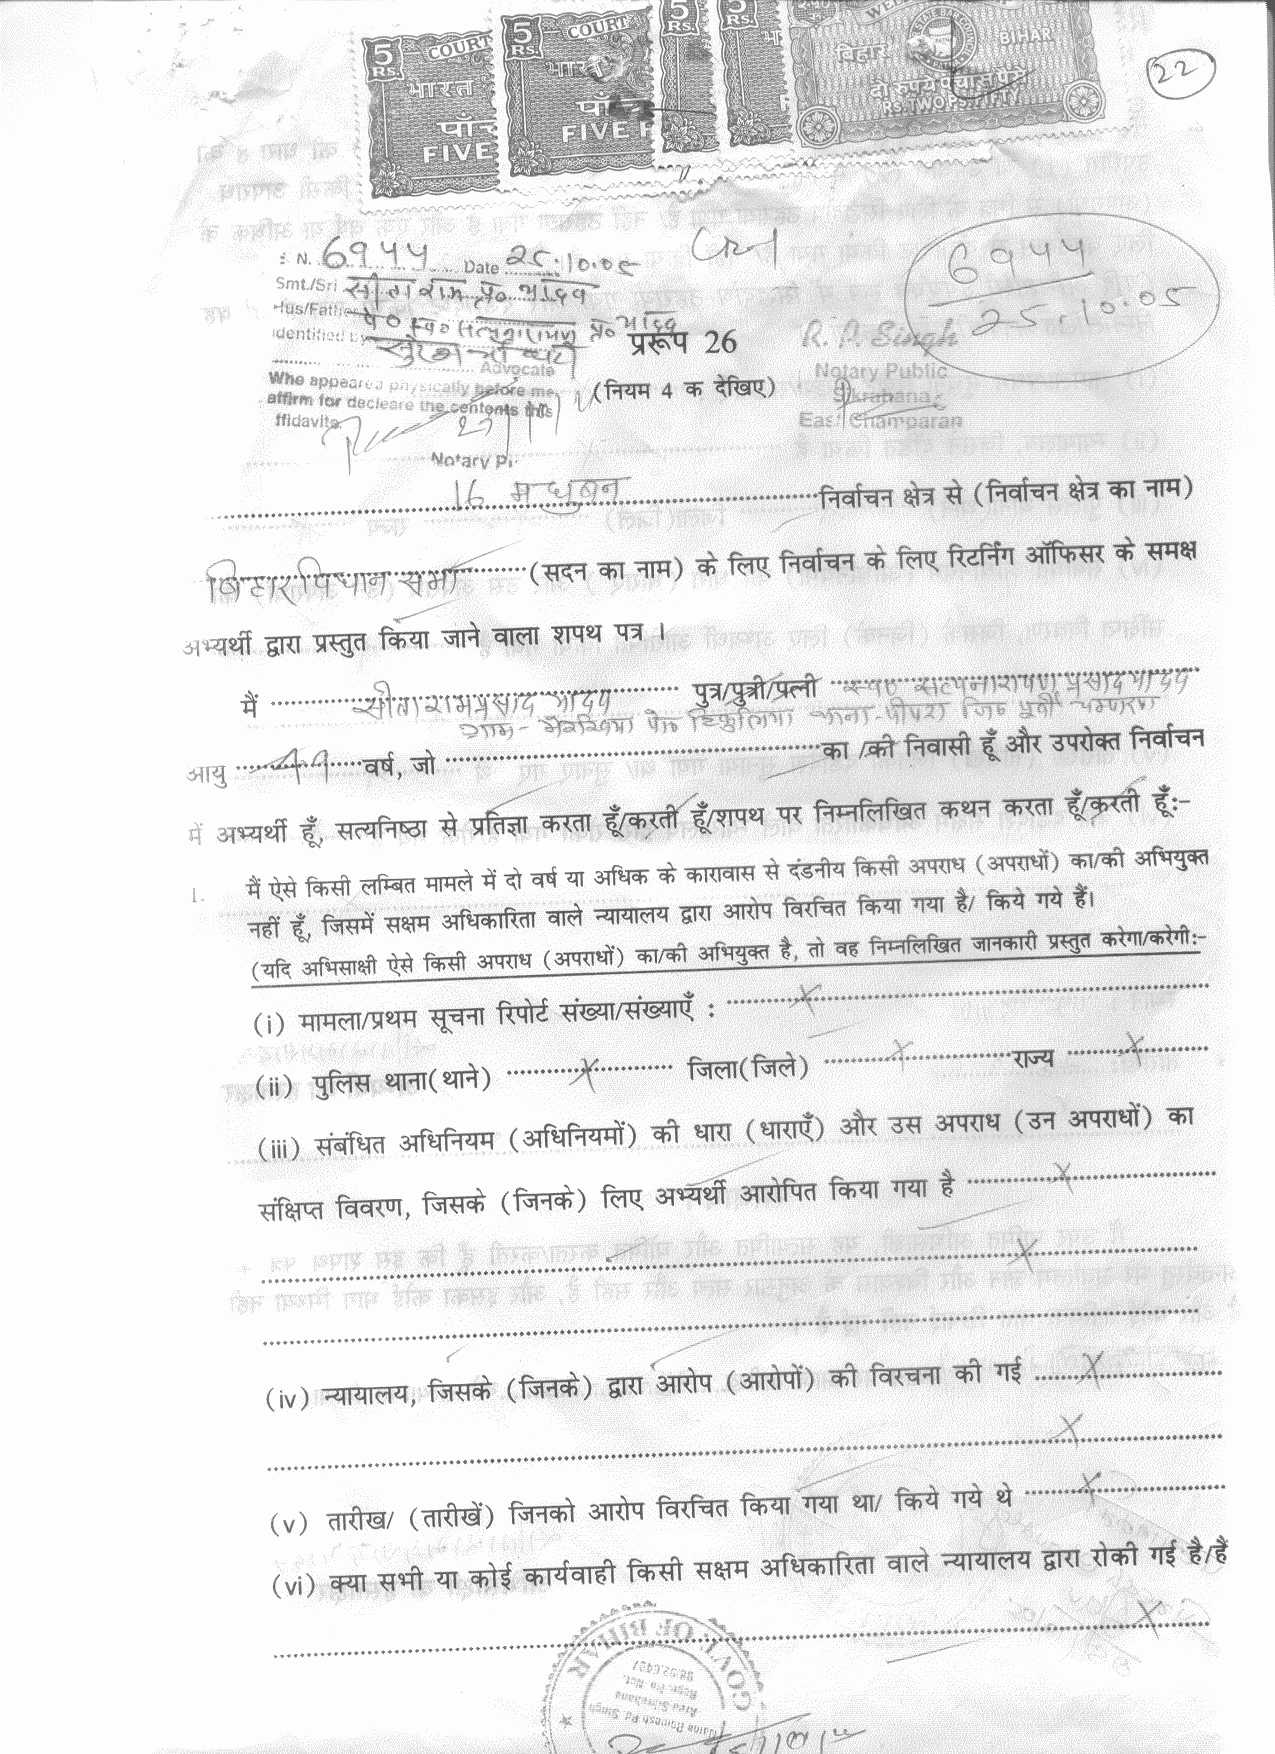 5 RS. COURT
भारत
FIVE
5 RS. COURT
FIVE
5 RS.
5 RS.
बिहार BIHAR
दो रुपये पचास पैसे
RS. TWO PS. FIFTY
22
N. 6944 Date 25.10.05
6944
25.10.05
Smt./Sri सीता राम प्र० यादव
Hus/Father पे० स्व० सत्यनारायण प्र० यादव
identified by
Advocate
Who appeared physically before me
affirm for decleare the contents this
ffidavits
Notary P
R. P. Singh
Notary Public
Sikrahana
East Champaran
प्ररूप 26
(नियम 4 क देखिए)
16 मधुबन निर्वाचन क्षेत्र से (निर्वाचन क्षेत्र का नाम)
बिहार विधान सभा (सदन का नाम) के लिए निर्वाचन के लिए रिटर्निंग ऑफिसर के समक्ष
अभ्यर्थी द्वारा प्रस्तुत किया जाने वाला शपथ पत्र ।
मैं सीता राम प्रसाद यादव पुत्र/पुत्री/पत्नी स्व० सत्यनारायण प्रसाद यादव
आयु वर्ष, जो का /की निवासी हूँ और उपरोक्त निर्वाचन
में अभ्यर्थी हूँ, सत्यनिष्ठा से प्रतिज्ञा करता हूँ/करती हूँ/शपथ पर निम्नलिखित कथन करता हूँ/करती हूँ:-
1. मैं ऐसे किसी लम्बित मामले में दो वर्ष या अधिक के कारावास से दंडनीय किसी अपराध (अपराधों) का/की अभियुक्त
नहीं हूँ, जिसमें सक्षम अधिकारिता वाले न्यायालय द्वारा आरोप विरचित किया गया है/ किये गये हैं।
(यदि अभिसाक्षी ऐसे किसी अपराध (अपराधों) का/की अभियुक्त है, तो वह निम्नलिखित जानकारी प्रस्तुत करेगा/करेगी:-
(i) मामला/प्रथम सूचना रिपोर्ट संख्या/संख्याएँ : X
(ii) पुलिस थाना(थाने) X जिला(जिले) X राज्य X
(iii) संबंधित अधिनियम (अधिनियमों) की धारा (धाराएँ) और उस अपराध (उन अपराधों) का
संक्षिप्त विवरण, जिसके (जिनके) लिए अभ्यर्थी आरोपित किया गया है X
X
(iv) न्यायालय, जिसके (जिनके) द्वारा आरोप (आरोपों) की विरचना की गई X
X
(v) तारीख/ (तारीखें) जिनको आरोप विरचित किया गया था/ किये गये थे X
(vi) क्या सभी या कोई कार्यवाही किसी सक्षम अधिकारिता वाले न्यायालय द्वारा रोकी गई है/हैं
X
GOVT. OF BIHAR